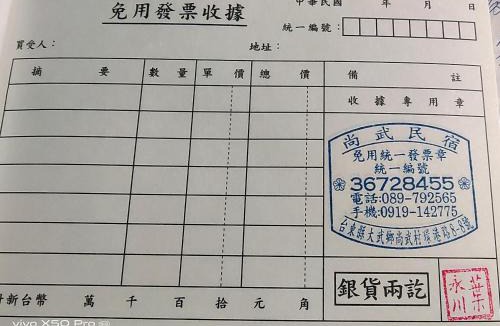 中華民國 年 月 日
免用發票收據
統一編號:
買受人: 地址:
摘要 數量 單價 總價 備註
收據專用章
尚武民宿
免用統一發票章
統一編號
36728455
電話:089-792565
手機:0919-142775
台東縣大武鄉尚武村環港路8-8號
新台幣 萬 千 百 拾 元 角
銀貨兩訖
葉永川
vivo X50 Pro